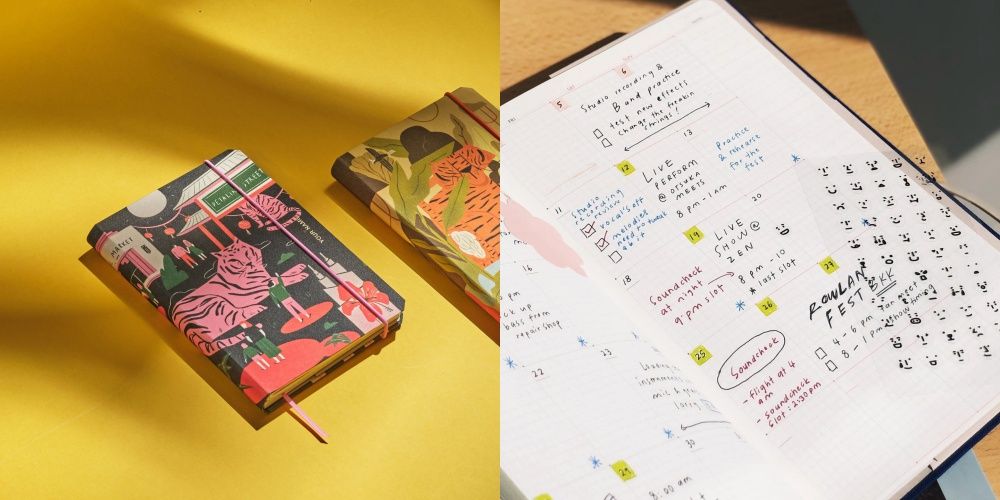 PETALING STREET
MARKET
YOUR NAME
5
6
Studio recording &
Band practice
test new effects
Change the freakin
strings!
12
13
LIVE
PERFORM
@ OTSUKA
MEETS
8 pm - 1 am
Practice
& rehearse
for the
fest
11
Studio
recording
review
vocal's off
melodies
need to tweak
a bit
18
19
20
LIVE
SHOW @
ZEN
8 pm - 10
* last slot
Soundcheck
at night
9 pm slot
25
26
27
Soundcheck
- flight at 4
am
- soundcheck
slot: 2:30 pm
ROWLAN
FEST BKK
4 - 6 pm fan meet
8 - 1 pm show timing
16
pm
ck up
bass from
repair shop
22
23
29
30
8:00 am